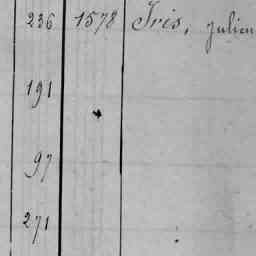 236 1578 Iris, Julien
191
97
271